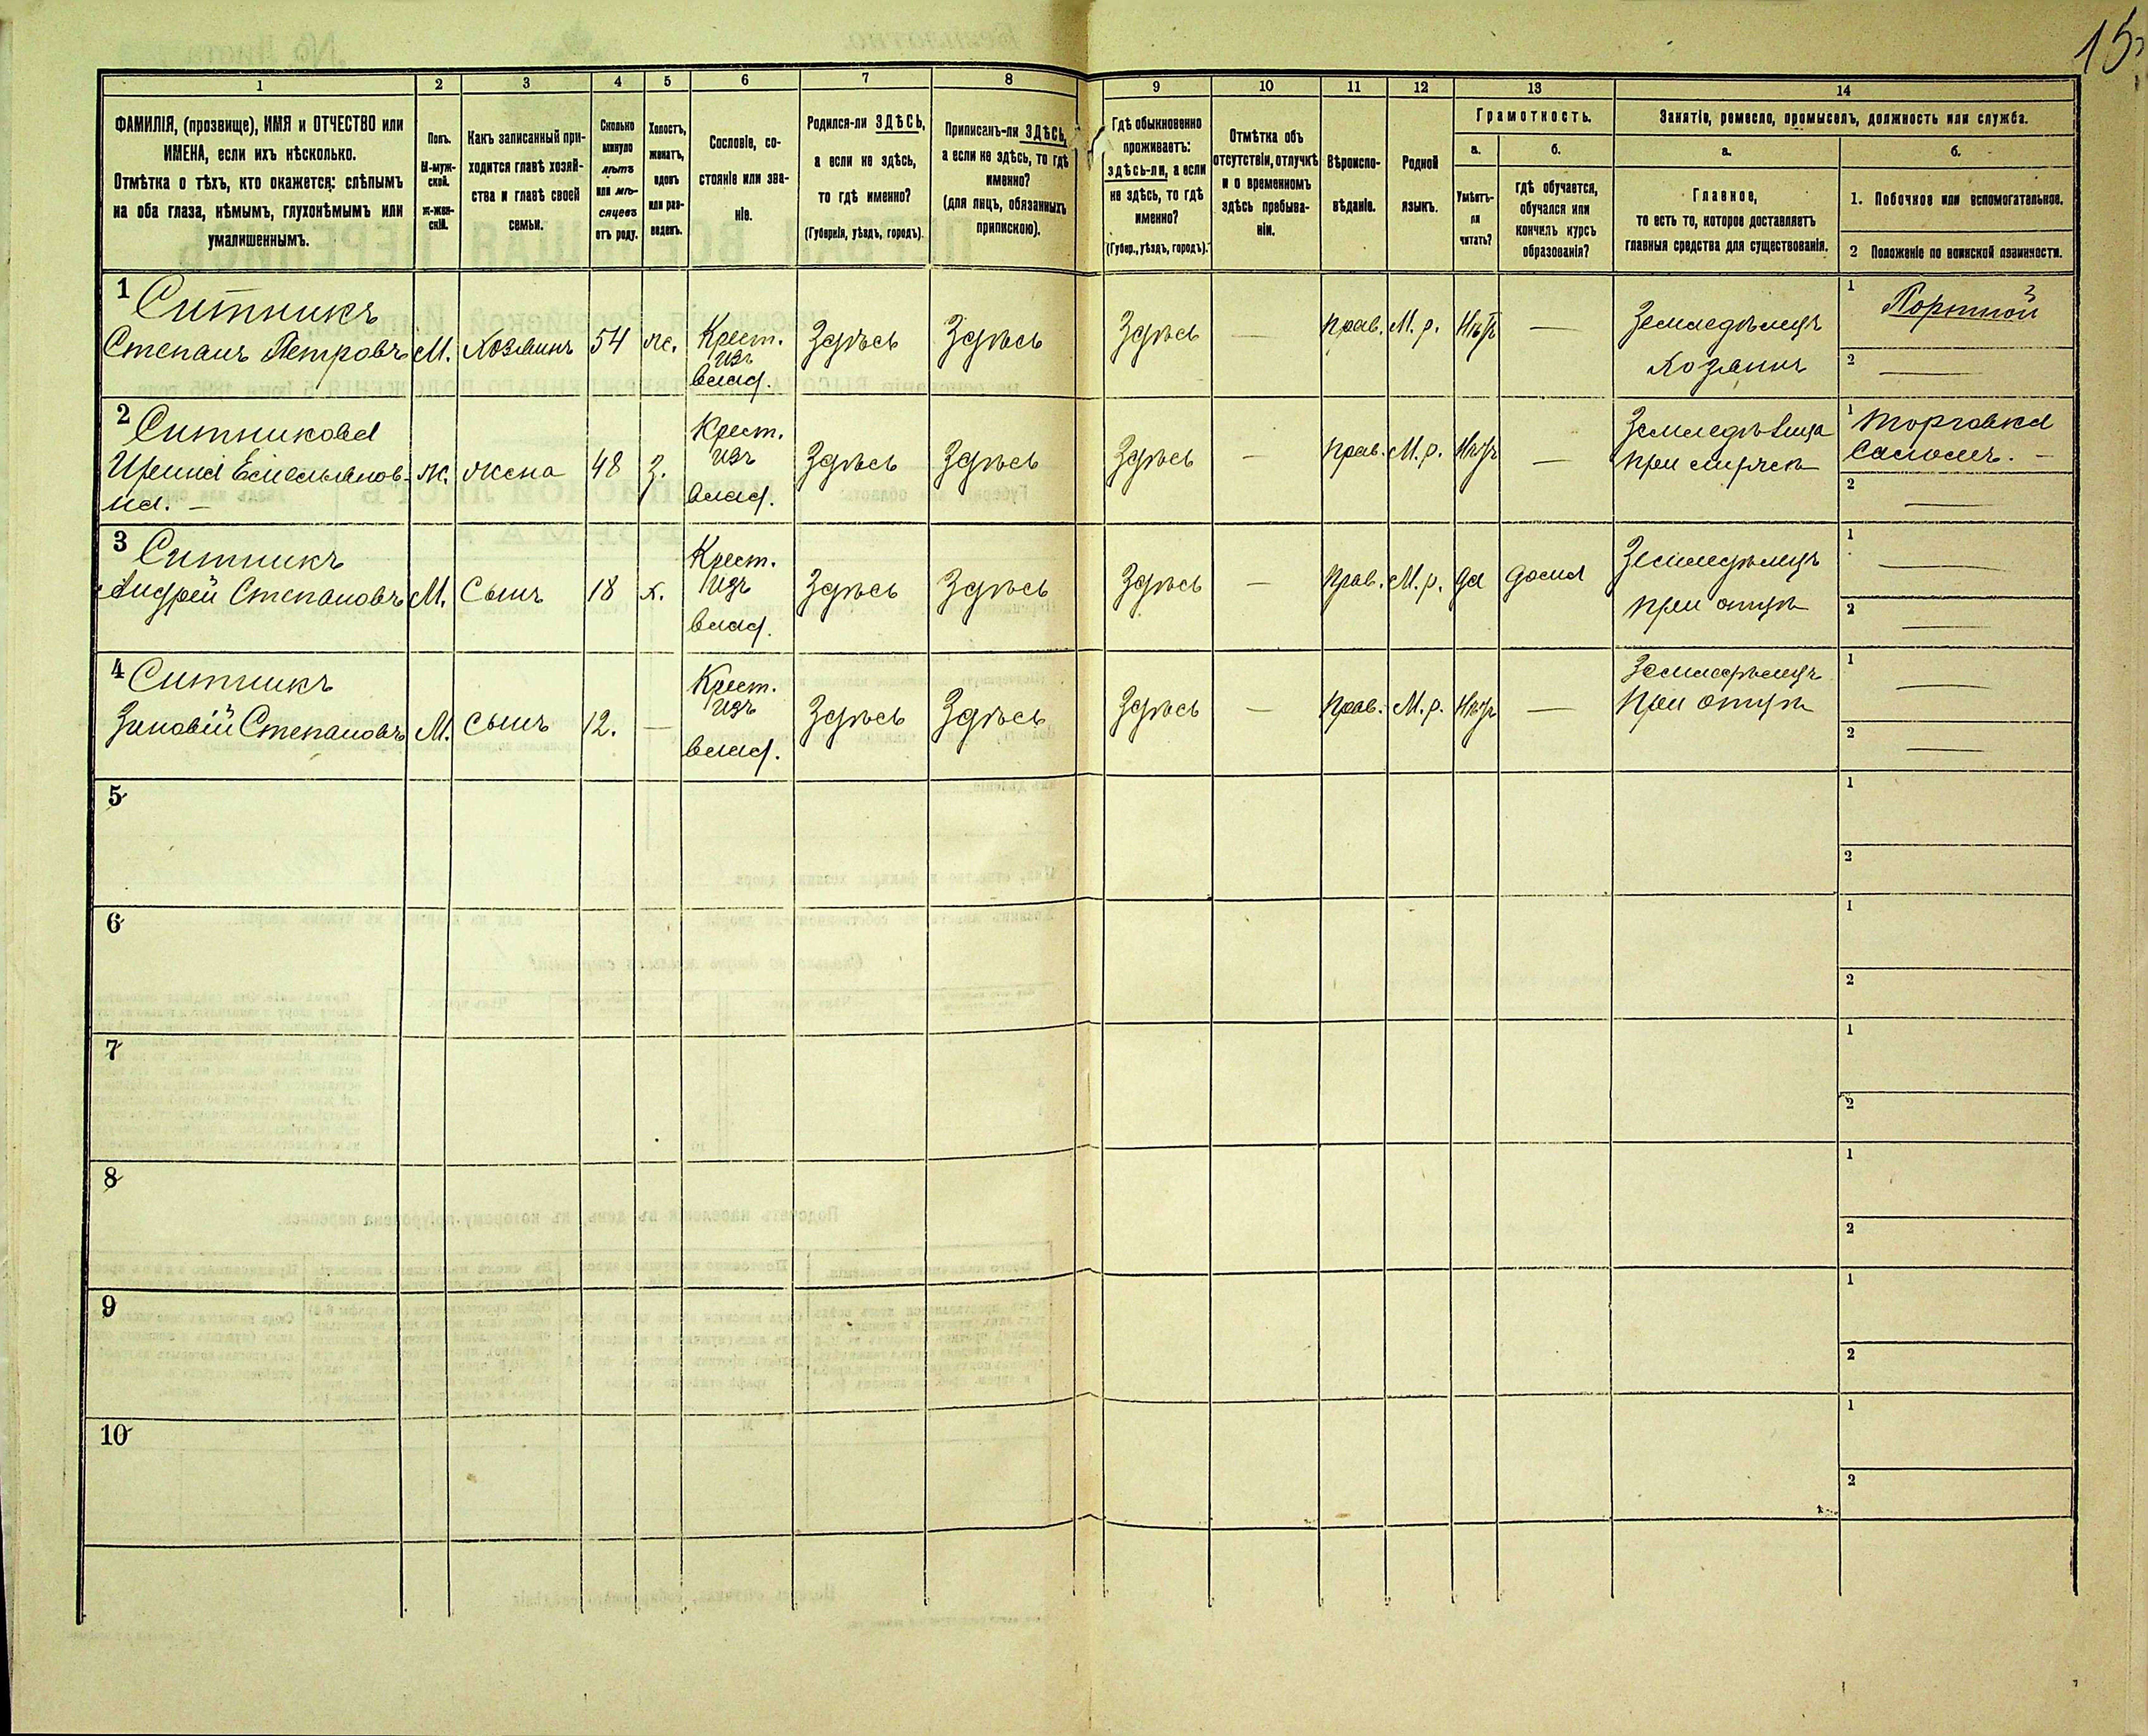 15
1 2 3 4 5 6 7 8 9 10 11 12 13 14
ФАМИЛІЯ, (прозвище), ИМЯ и ОТЧЕСТВО или
ИМЕНА, если ихъ нѣсколько.
Отмѣтка о тѣхъ, кто окажется: слѣпымъ
на оба глаза, нѣмымъ, глухонѣмымъ или
умалишеннымъ.
Полъ.
М-муж-
ской.
ж-жен-
скій.
Какъ записанный при-
ходится главѣ хозяй-
ства и главѣ своей
семьи.
Сколько
минуло
лѣтъ
или мѣ-
сяцевъ
отъ роду.
Холостъ,
женатъ,
вдовъ
или раз-
веденъ.
Сословіе, со-
стояніе или зва-
ніе.
Родился-ли ЗДѢСЬ,
а если не здѣсь,
то гдѣ именно?
(Губернія, уѣздъ, городъ).
Приписанъ-ли ЗДѢСЬ,
а если не здѣсь, то гдѣ
именно?
(для лицъ, обязанныхъ
припискою).
Гдѣ обыкновенно
проживаетъ:
здѣсь-ли, а если
не здѣсь, то гдѣ
именно?
(Губер., уѣздъ, городъ).
Отмѣтка объ
отсутствіи, отлучкѣ
и о временномъ
здѣсь пребыва-
ніи.
Вѣроиспо-
вѣданіе.
Родной
языкъ.
Грамотность.
а.
Умѣетъ-
ли
читать?
б.
гдѣ обучается,
обучался или
кончилъ курсъ
образованія?
Занятіе, ремесло, промыселъ, должность или служба.
а.
Главное,
то есть то, которое доставляетъ
главныя средства для существованія.
б.
1. Побочное или вспомогательное.
2 Положеніе по воинской повинности.
1 Ситникъ
Степанъ Петровъ М. Хозяинъ 54 ж. Крест. изъ влад. Здѣсь Здѣсь Здѣсь — прав. М. р. Нѣтъ — Земледѣлецъ Хозяинъ 1 Портной
2 —
2 Ситникова
Ирина Емельянов-
на. — ж. жена 48 З. Крест. изъ влад. Здѣсь Здѣсь Здѣсь — прав. М. р. Нѣтъ — Земледѣлица при мужѣ 1 Торговка
саломъ. —
2 —
3 Ситникъ
Андрей Степановъ М. Сынъ 18 х. Крест. изъ влад. Здѣсь Здѣсь Здѣсь — прав. М. р. да дома Земледѣлецъ при отцѣ 1 —
2 —
4 Ситникъ
Зиновій Степановъ М. сынъ 12. — Крест. изъ влад. Здѣсь Здѣсь Здѣсь — прав. М. р. Нѣтъ — Земледѣлецъ при отцѣ 1 —
2 —
5 1
2
6 1
2
7 1
2
8 1
2
9 1
2
10 1
2